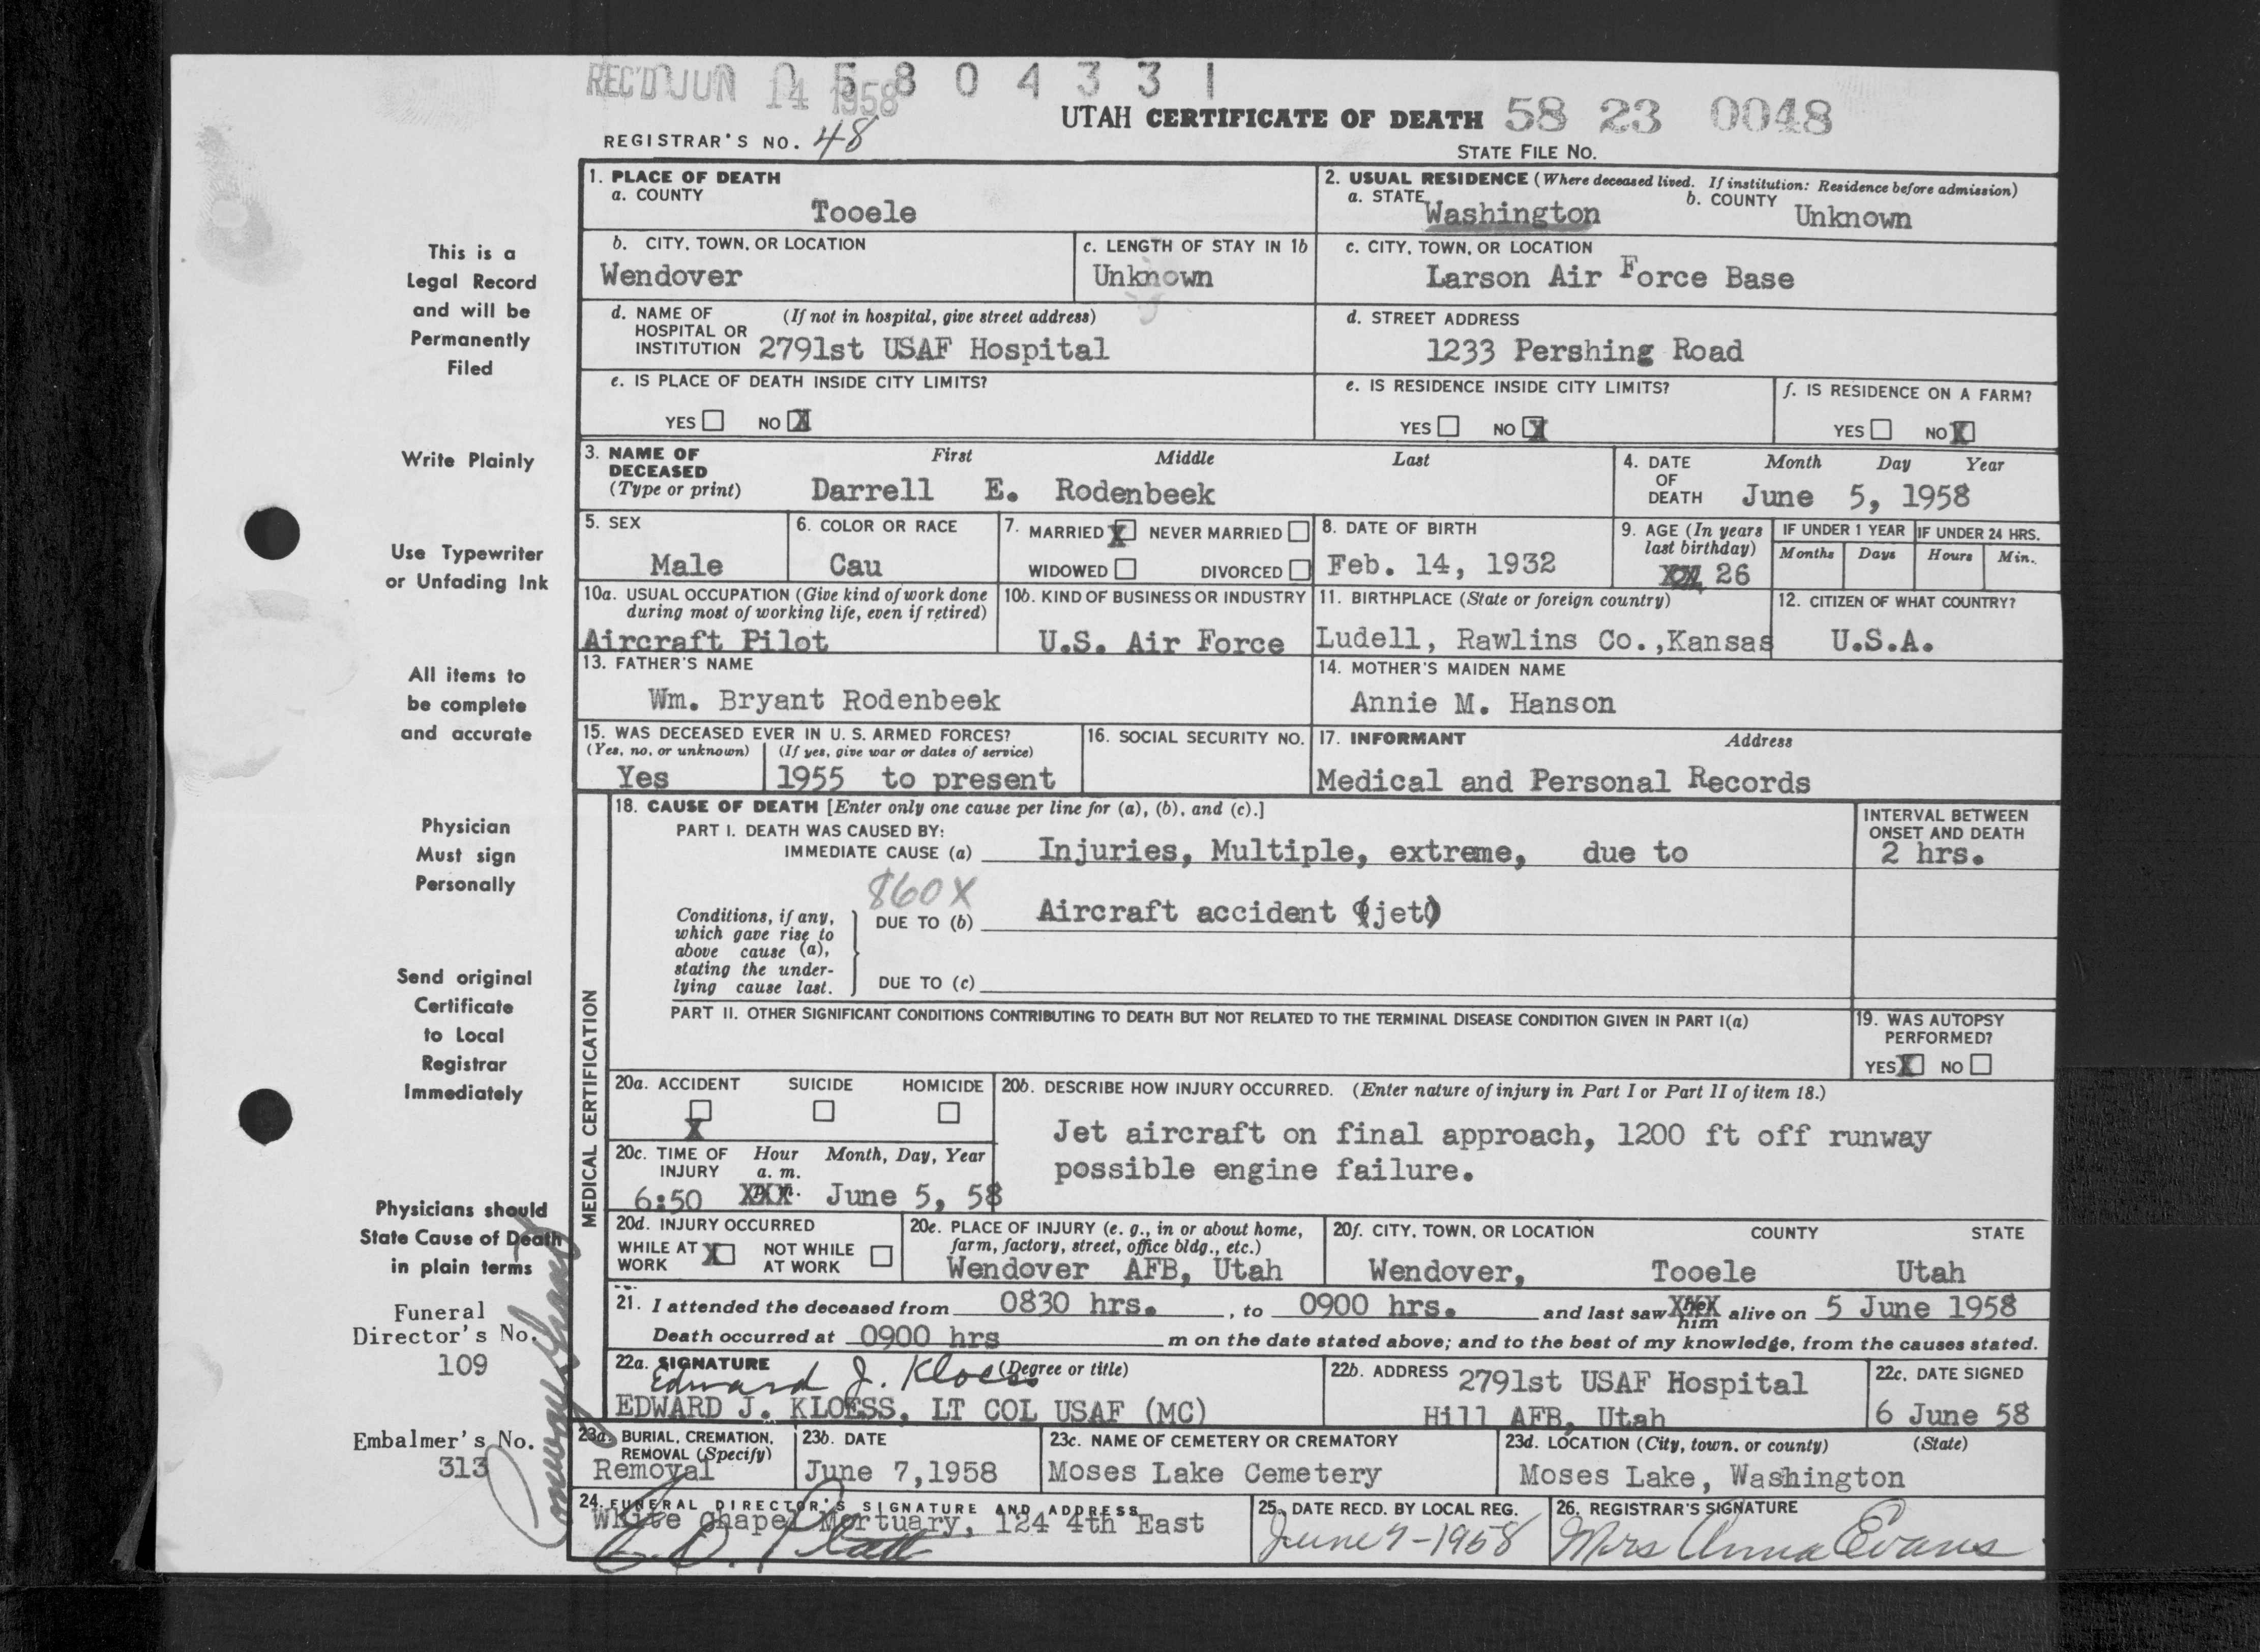 REC'D JUN 14 1958
0 5 8 0 4 3 3 1
UTAH CERTIFICATE OF DEATH 58 23 0048
REGISTRAR'S NO. 48
STATE FILE NO.
This is a
Legal Record
and will be
Permanently
Filed
Write Plainly
Use Typewriter
or Unfading Ink
All items to
be complete
and accurate
Physician
Must sign
Personally
Send original
Certificate
to Local
Registrar
Immediately
Physicians should
State Cause of Death
in plain terms
Funeral
Director's No.
109
Embalmer's No.
313
1. PLACE OF DEATH
a. COUNTY
Tooele
2. USUAL RESIDENCE (Where deceased lived. If institution: Residence before admission)
a. STATE Washington b. COUNTY Unknown
b. CITY, TOWN, OR LOCATION
Wendover
c. LENGTH OF STAY IN 1b
Unknown
c. CITY, TOWN, OR LOCATION
Larson Air Force Base
d. NAME OF (If not in hospital, give street address)
HOSPITAL OR
INSTITUTION 2791st USAF Hospital
d. STREET ADDRESS
1233 Pershing Road
e. IS PLACE OF DEATH INSIDE CITY LIMITS?
YES NO X
e. IS RESIDENCE INSIDE CITY LIMITS?
YES NO X
f. IS RESIDENCE ON A FARM?
YES NO X
3. NAME OF DECEASED (Type or print)
First Middle Last
Darrell E. Rodenbeek
4. DATE OF DEATH
Month Day Year
June 5, 1958
5. SEX
Male
6. COLOR OR RACE
Cau
7. MARRIED X NEVER MARRIED
WIDOWED DIVORCED
8. DATE OF BIRTH
Feb. 14, 1932
9. AGE (In years
last birthday)
26
IF UNDER 1 YEAR
Months Days
IF UNDER 24 HRS.
Hours Min.
10a. USUAL OCCUPATION (Give kind of work done
during most of working life, even if retired)
Aircraft Pilot
10b. KIND OF BUSINESS OR INDUSTRY
U.S. Air Force
11. BIRTHPLACE (State or foreign country)
Ludell, Rawlins Co.,Kansas
12. CITIZEN OF WHAT COUNTRY?
U.S.A.
13. FATHER'S NAME
Wm. Bryant Rodenbeek
14. MOTHER'S MAIDEN NAME
Annie M. Hanson
15. WAS DECEASED EVER IN U. S. ARMED FORCES?
(Yes, no, or unknown) (If yes, give war or dates of service)
Yes 1955 to present
16. SOCIAL SECURITY NO.
17. INFORMANT Address
Medical and Personal Records
MEDICAL CERTIFICATION
18. CAUSE OF DEATH [Enter only one cause per line for (a), (b), and (c).]
PART I. DEATH WAS CAUSED BY:
IMMEDIATE CAUSE (a) Injuries, Multiple, extreme, due to
INTERVAL BETWEEN
ONSET AND DEATH
2 hrs.
860X
DUE TO (b) Aircraft accident (jet)
Conditions, if any,
which gave rise to
above cause (a),
stating the under-
lying cause last.
DUE TO (c)
PART II. OTHER SIGNIFICANT CONDITIONS CONTRIBUTING TO DEATH BUT NOT RELATED TO THE TERMINAL DISEASE CONDITION GIVEN IN PART I(a)
19. WAS AUTOPSY
PERFORMED?
YES X NO
20a. ACCIDENT SUICIDE HOMICIDE
X
20b. DESCRIBE HOW INJURY OCCURRED. (Enter nature of injury in Part I or Part II of item 18.)
Jet aircraft on final approach, 1200 ft off runway
possible engine failure.
20c. TIME OF INJURY Hour Month, Day, Year
a. m.
6:50 XXX June 5, 58
20d. INJURY OCCURRED
WHILE AT WORK X NOT WHILE AT WORK
20e. PLACE OF INJURY (e. g., in or about home,
farm, factory, street, office bldg., etc.)
Wendover AFB, Utah
20f. CITY, TOWN, OR LOCATION COUNTY STATE
Wendover, Tooele Utah
21. I attended the deceased from 0830 hrs. , to 0900 hrs. and last saw him alive on 5 June 1958
Death occurred at 0900 hrs m on the date stated above; and to the best of my knowledge, from the causes stated.
22a. SIGNATURE (Degree or title)
Edward J. Kloess
EDWARD J. KLOESS, LT COL USAF (MC)
22b. ADDRESS 2791st USAF Hospital
Hill AFB, Utah
22c. DATE SIGNED
6 June 58
23a. BURIAL, CREMATION,
REMOVAL (Specify)
Removal
23b. DATE
June 7,1958
23c. NAME OF CEMETERY OR CREMATORY
Moses Lake Cemetery
23d. LOCATION (City, town, or county) (State)
Moses Lake, Washington
24. FUNERAL DIRECTOR'S SIGNATURE AND ADDRESS
White Chapel Mortuary, 124 4th East
25. DATE RECD. BY LOCAL REG.
June 9-1958
26. REGISTRAR'S SIGNATURE
Mrs Anna Evans